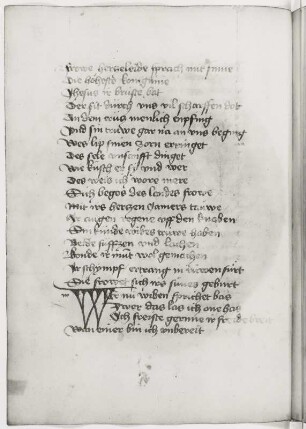 Frowe hertzeleide sprach mit sinne
Die hoheste konigynne
Jhesus ir bruste bot
Der sit durch uns vil scharffen dot
An dem crutz menlich enpfing
Und sin truwe gar na an uns beging
Wes lip sinen zorn erringet
Des sele unsanfft dinget
Wie kusch er si und wer
Des weis ich wore mere
Sich begos des landes frowe
Mit irs hertzen jamers touwe
Ir augen regene uff den knaben
Sin kunde wibes truwe haben
Beide sufftzen und lachen
Konde ir munt wol gemachen
Ir schympf ertranck in ruwen furt
Die frowet sich irs sunes geburt
Wer nu wiben sprichet bas
Zwor das las ich one has
Ich freiste gerne ir freude breit
Wan einer bin ich unbereit